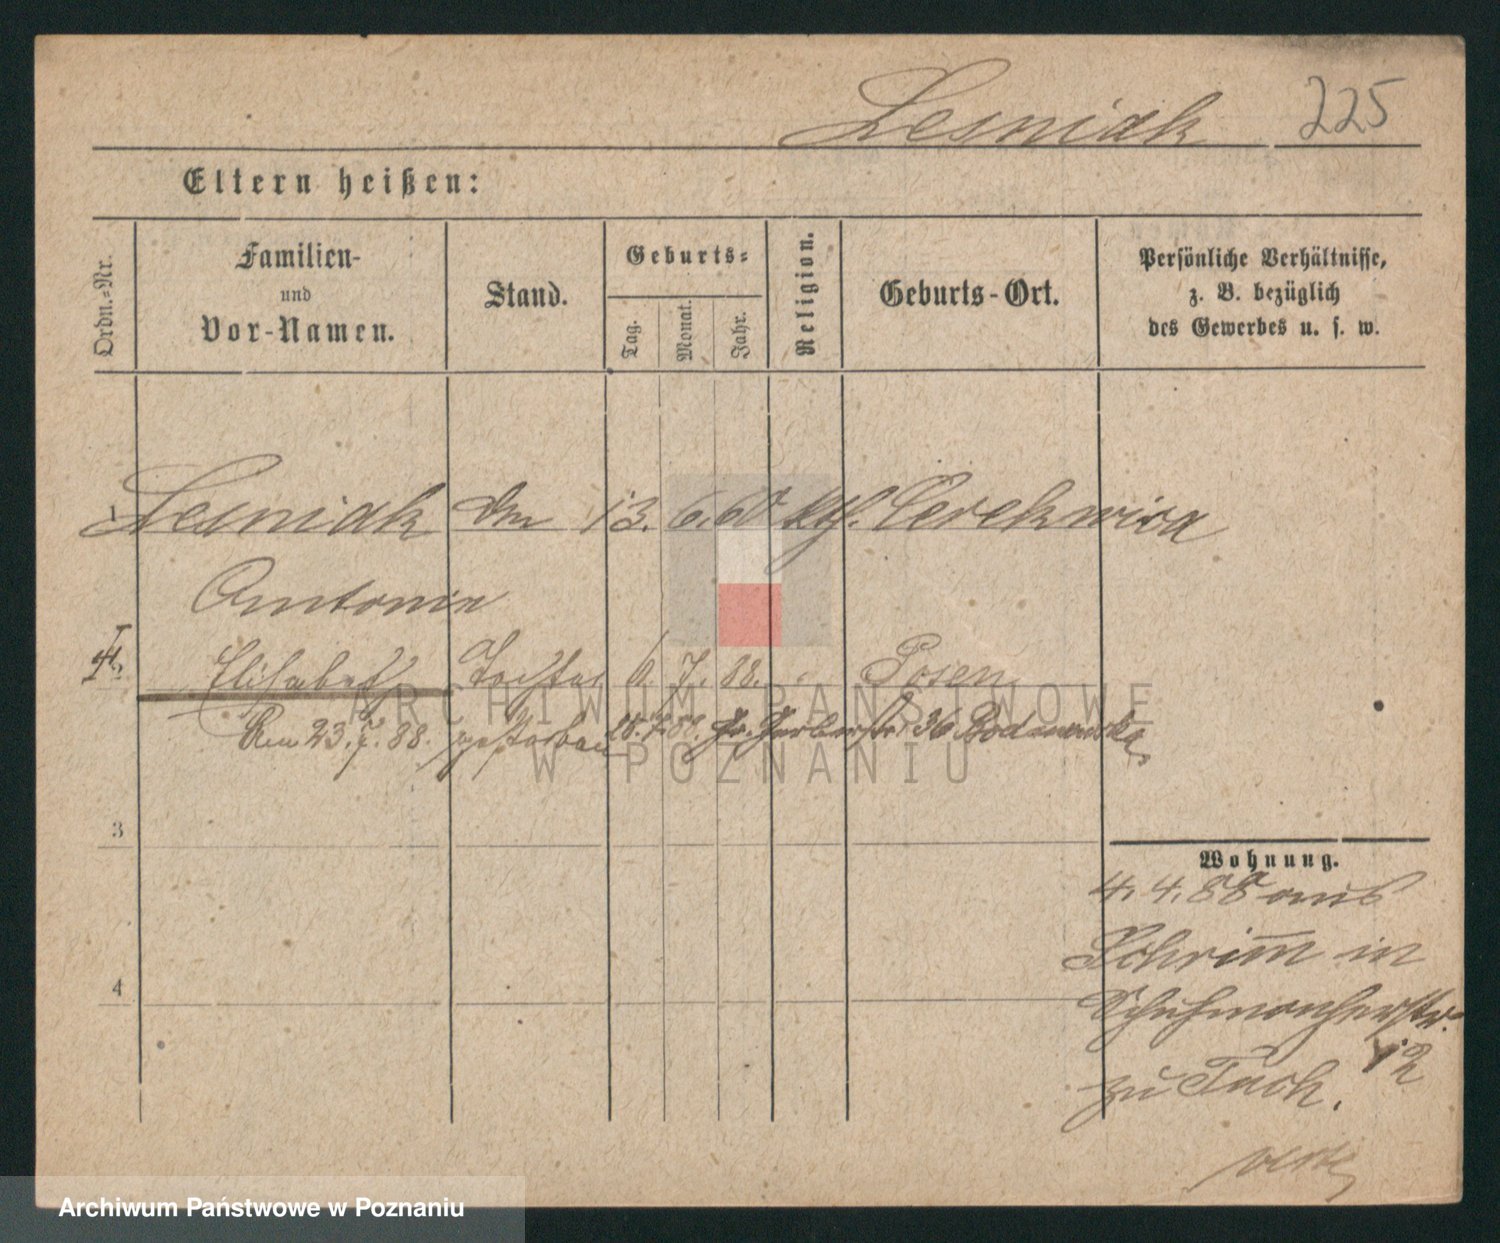 Lesniak 225
Eltern heißen:
Ordn.-Nr.
Familien-
und
Vor-Namen.
Stand.
Geburts-
Tag.
Monat.
Jahr.
Religion.
Geburts-Ort.
Persönliche Verhältnisse,
z. B. bezüglich
des Gewerbes u. s. w.
1 Lesniak 13. 6. 60 kth. Cerekwica
Antonie
Elisabeth Tochter 6. 7. 88. Posen
Am 23. 7. 88. gestorben
Gr. Gerberstr. 36
3
Wohnung.
4. 4. 88 aus
Schrimm in
4
Schuhmacherstr.
12
zu
ARCHIWUM PAŃSTWOWE
W POZNANIU
Archiwum Państwowe w Poznaniu